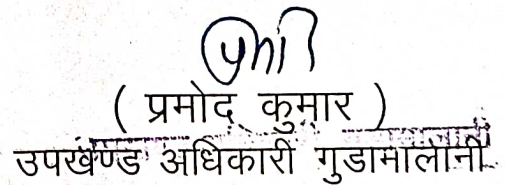 ( प्रमोद कुमार )
उपखण्ड अधिकारी गुडामालानी